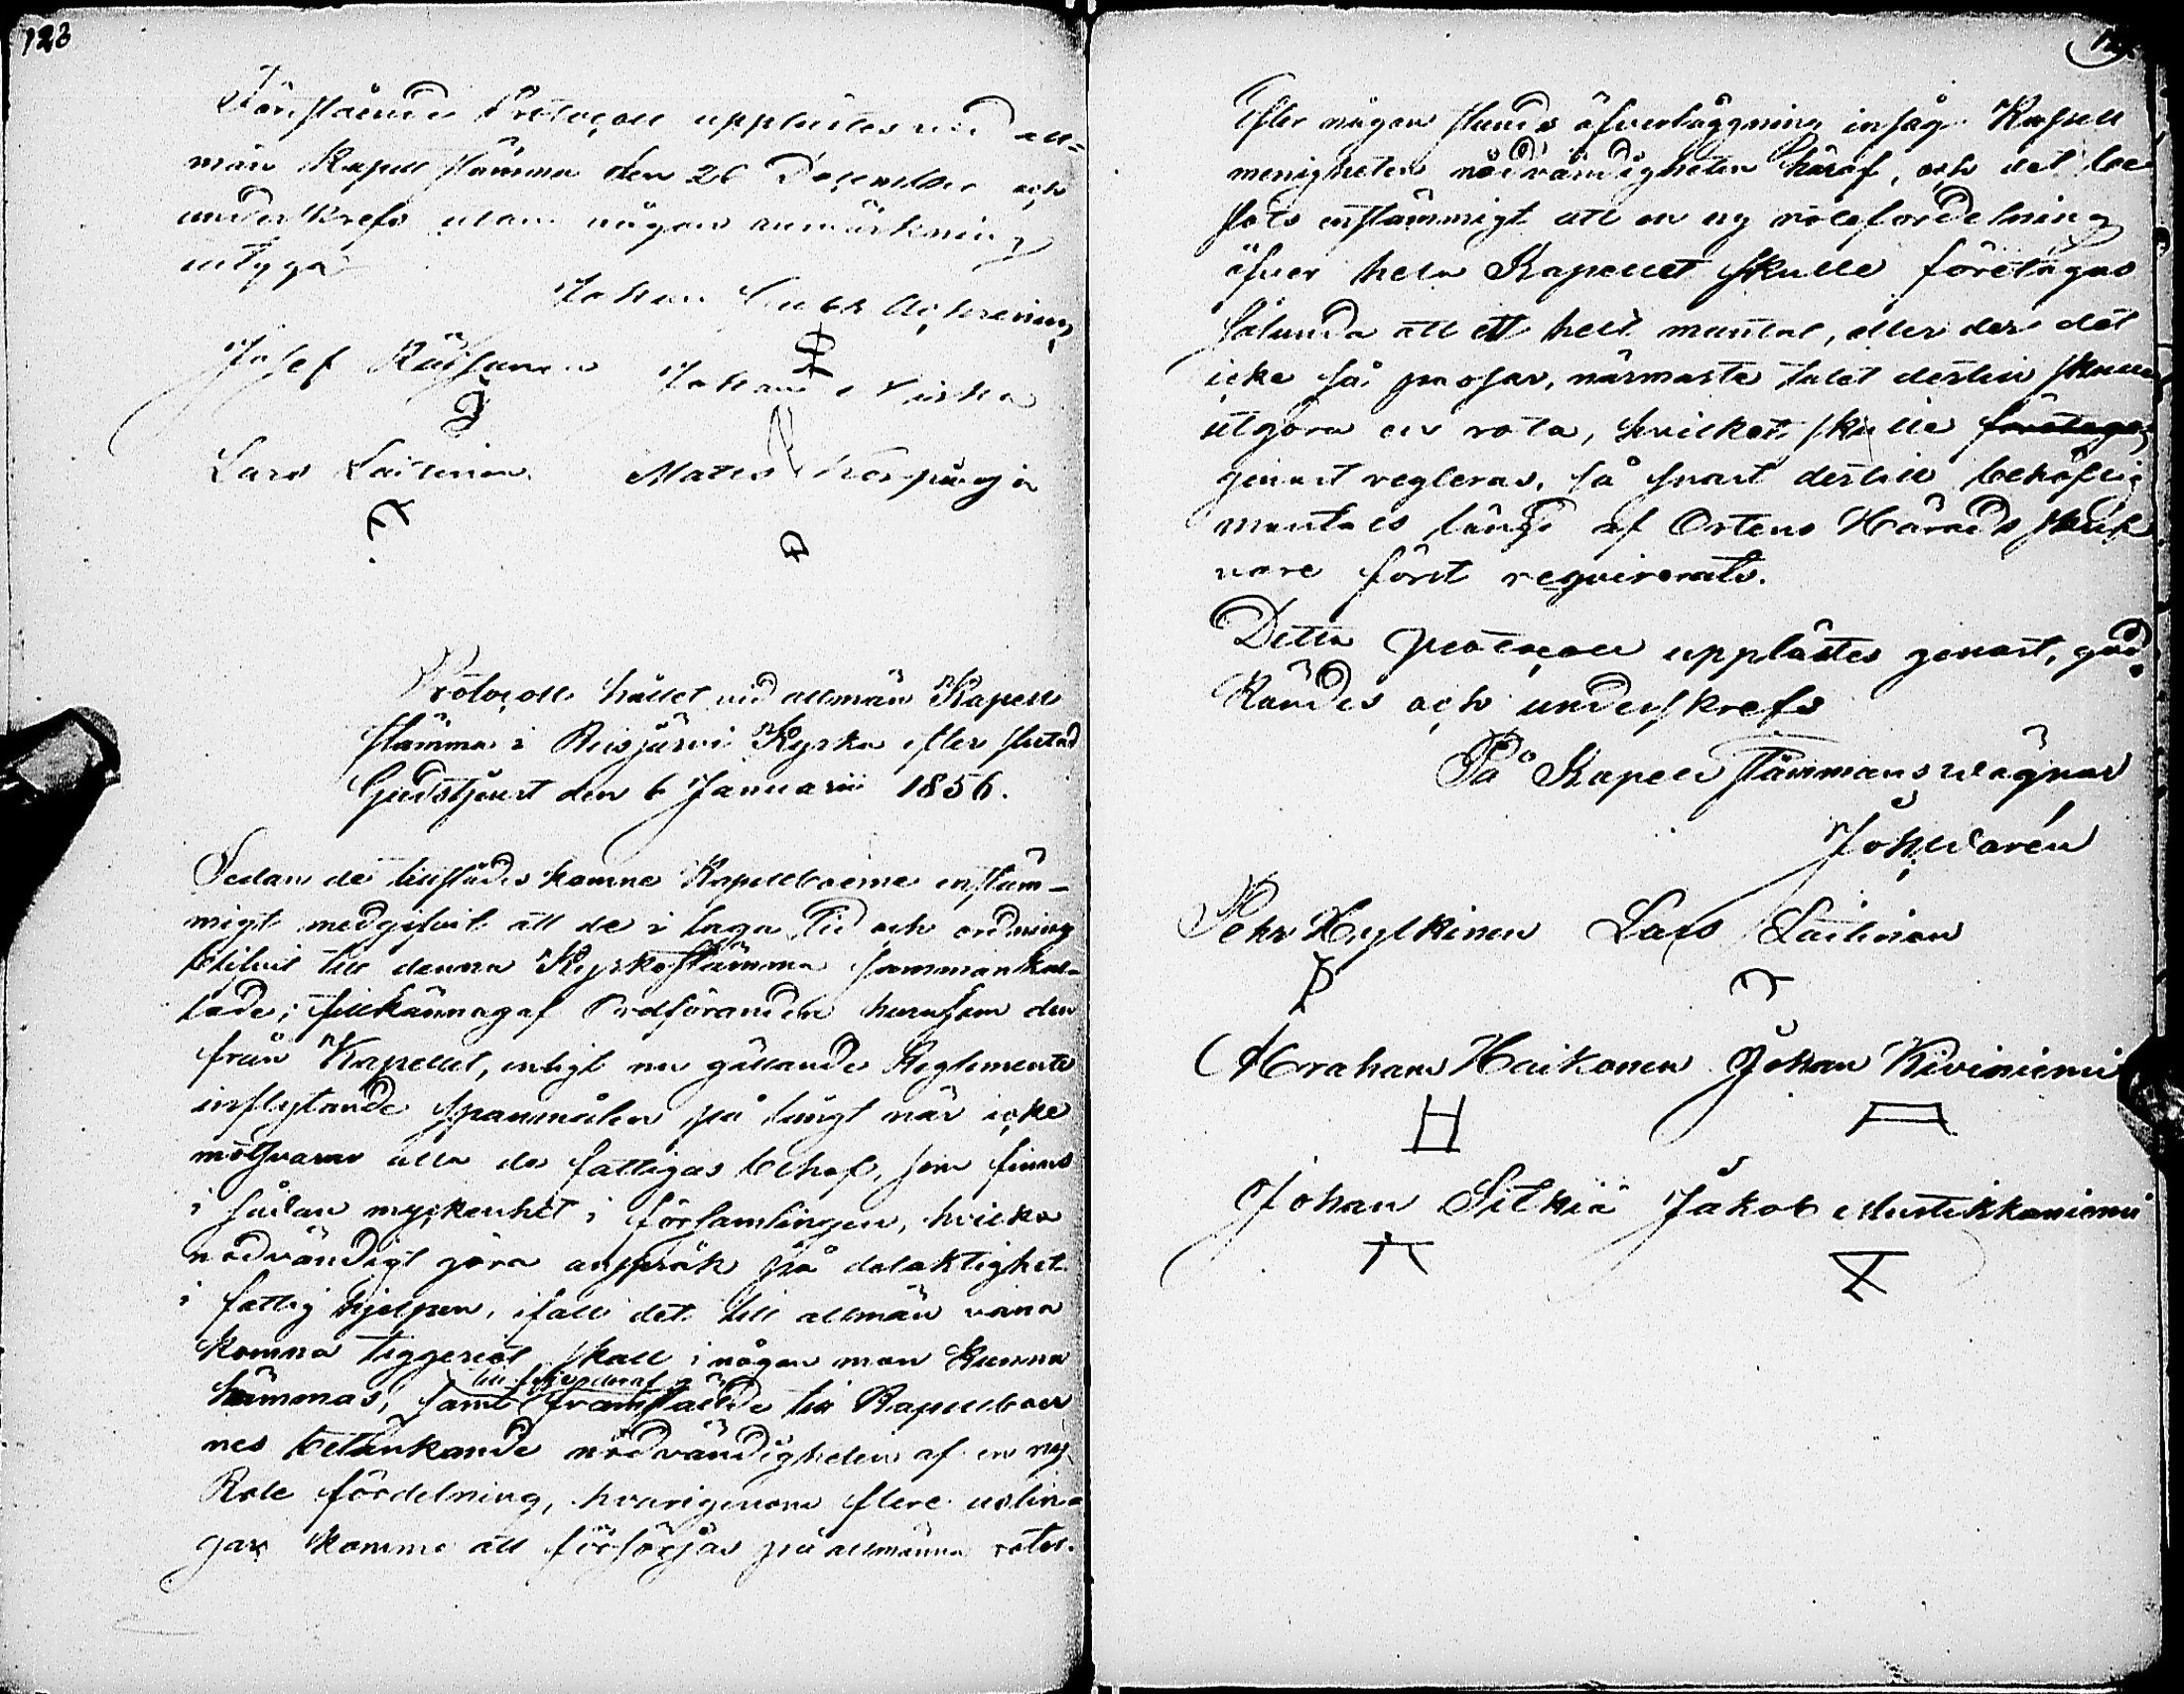 123
Förestående Protocoll upplästes vid all=
män Kapell stämma den 26 December och
underskrefs utan någon anmärkning
intyga
Johan
Josef Räisänen Johan Niska
Lars Laitinen Matts Korpioja
Protocoll hållet vid allmän Kapell
stämma i Reisjärvi Kyrka efter slutad
Gudstjenst den 6 Januarii 1856.
Sedan de tillstädes komne Kapellboerne enstäm-
migt medgifvit att de i laga tid och ordning
blifvit till denna Kyrkostämma samman kal-
lade; tillkännagaf Ordföranden hurusom den
från Kapellet, enligt nu gällande Reglemente
inflytande spannmålen på långt när icke
motsvarar alla de fattigas behof, som finnas
i sådan myckenhet i församlingen, hvilka
nödvändigt göra anspråk på delaktighet
i fattig hjelpen, ifall det till allmän vana
komna tiggeriet skall i någon mon kunna
hämmas, samt till följd deraf framstälde till Kapellboer
nes betänkande nödvändigheten af en ny
Rote fördelning, hvarigenom flere uslin-
gar komme att försörjas på allmänna rotel.
Efter någon stunds öfverläggning insåg Kapell
menigheten nödvändigheten häraf, och det be
slöts enstämmigt att en ny rotefordelning
öfver hela Kapellet skulle företagas
sålunda att ett helt mantal, eller der det
icke så passar, närmaste talet dertill skulle
utgöra en rota, hvilket skulle företagas
genast regleras, så snart dertill behöflig
mantals längd af Ortens Härads skrif
vare först reqvirerats.
Detta protocoll upplästes genast, god
kändes och underskrefs
På Kapell stämmans vägnar
Joh. Warén
Pehr Hylkinen Lars Laitinen
Abraham Haikonen Johan Kiviniemi
Johan Silkiä Jakob Mustikkaniemi